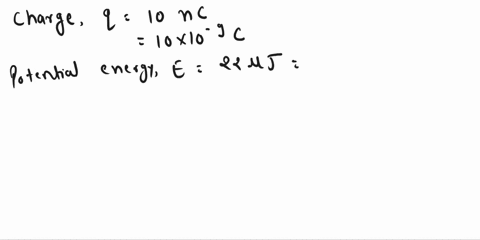 Charge, q = 10 nC
= 10×10⁻⁹ C
Potential energy, E = 22 μJ =